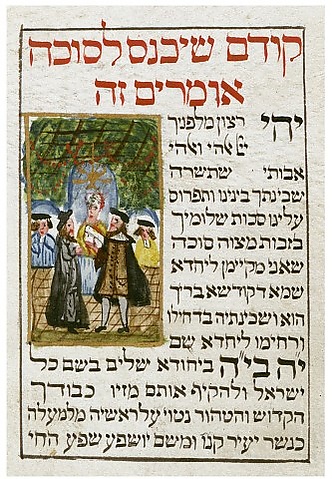 קודם שיכנס לסוכה
אומרים זה
יהי רצון מלפניך
ﭏהי וﭏהי
אבותי שתשרה
שכינתך בינינו ותפרוס
עלינו סכות שלומיך
בזכות מצוה סוכה
שאני מקיימן ליחדא
שמא דקודשא בריך
הוא ושכינתיה בדחילו
ורחימו ליחדא שם
יה בי״ה ביחודא שלים בשם כל
ישראל ולהקיף אותם מזיו כבודך
הקדוש והטהור נטוי על ראשיה מלמעלה
כנשר יעיר קנו ומשם יושפע שפע החי